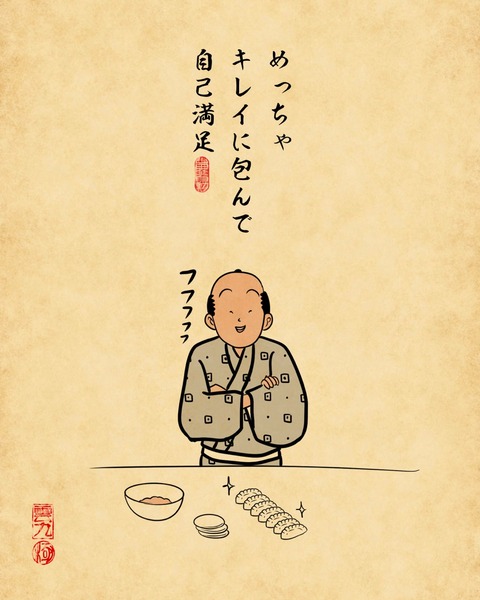 めっちゃ
キレイに包んで
自己満足
フフフフフ